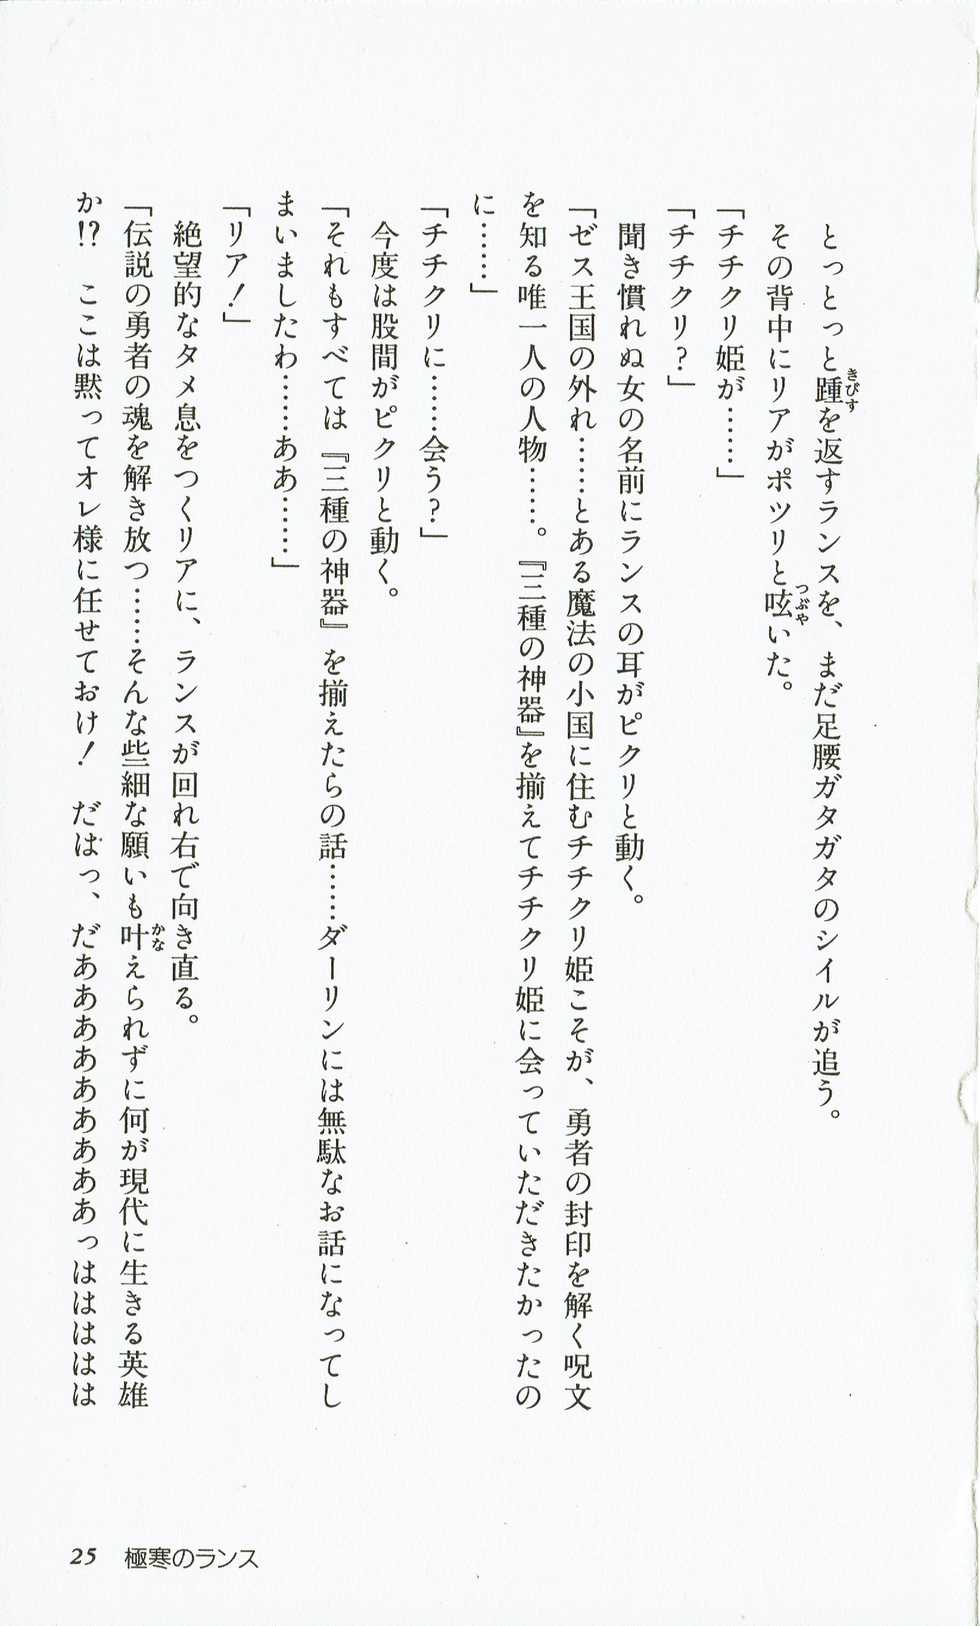 とっとっと踵を返すランスを、まだ足腰ガタガタのシイルが追う。
その背中にリアがポツリと呟いた。
「チチクリ姫が……」
「チチクリ？」
聞き慣れぬ女の名前にランスの耳がピクリと動く。
「ゼス王国の外れ……とある魔法の小国に住むチチクリ姫こそが、勇者の封印を解く呪文
を知る唯一人の人物……。『三種の神器』を揃えてチチクリ姫に会っていただきたかったの
に……」
「チチクリに……会う？」
今度は股間がピクリと動く。
「それもすべては『三種の神器』を揃えたらの話……ダーリンには無駄なお話になってし
まいましたわ……ああ……」
「リア！」
絶望的なタメ息をつくリアに、ランスが回れ右で向き直る。
「伝説の勇者の魂を解き放つ……そんな些細な願いも叶えられずに何が現代に生きる英雄
か!?　ここは黙ってオレ様に任せておけ！　だはっ、だあああああああああっはははは
25 極寒のランス